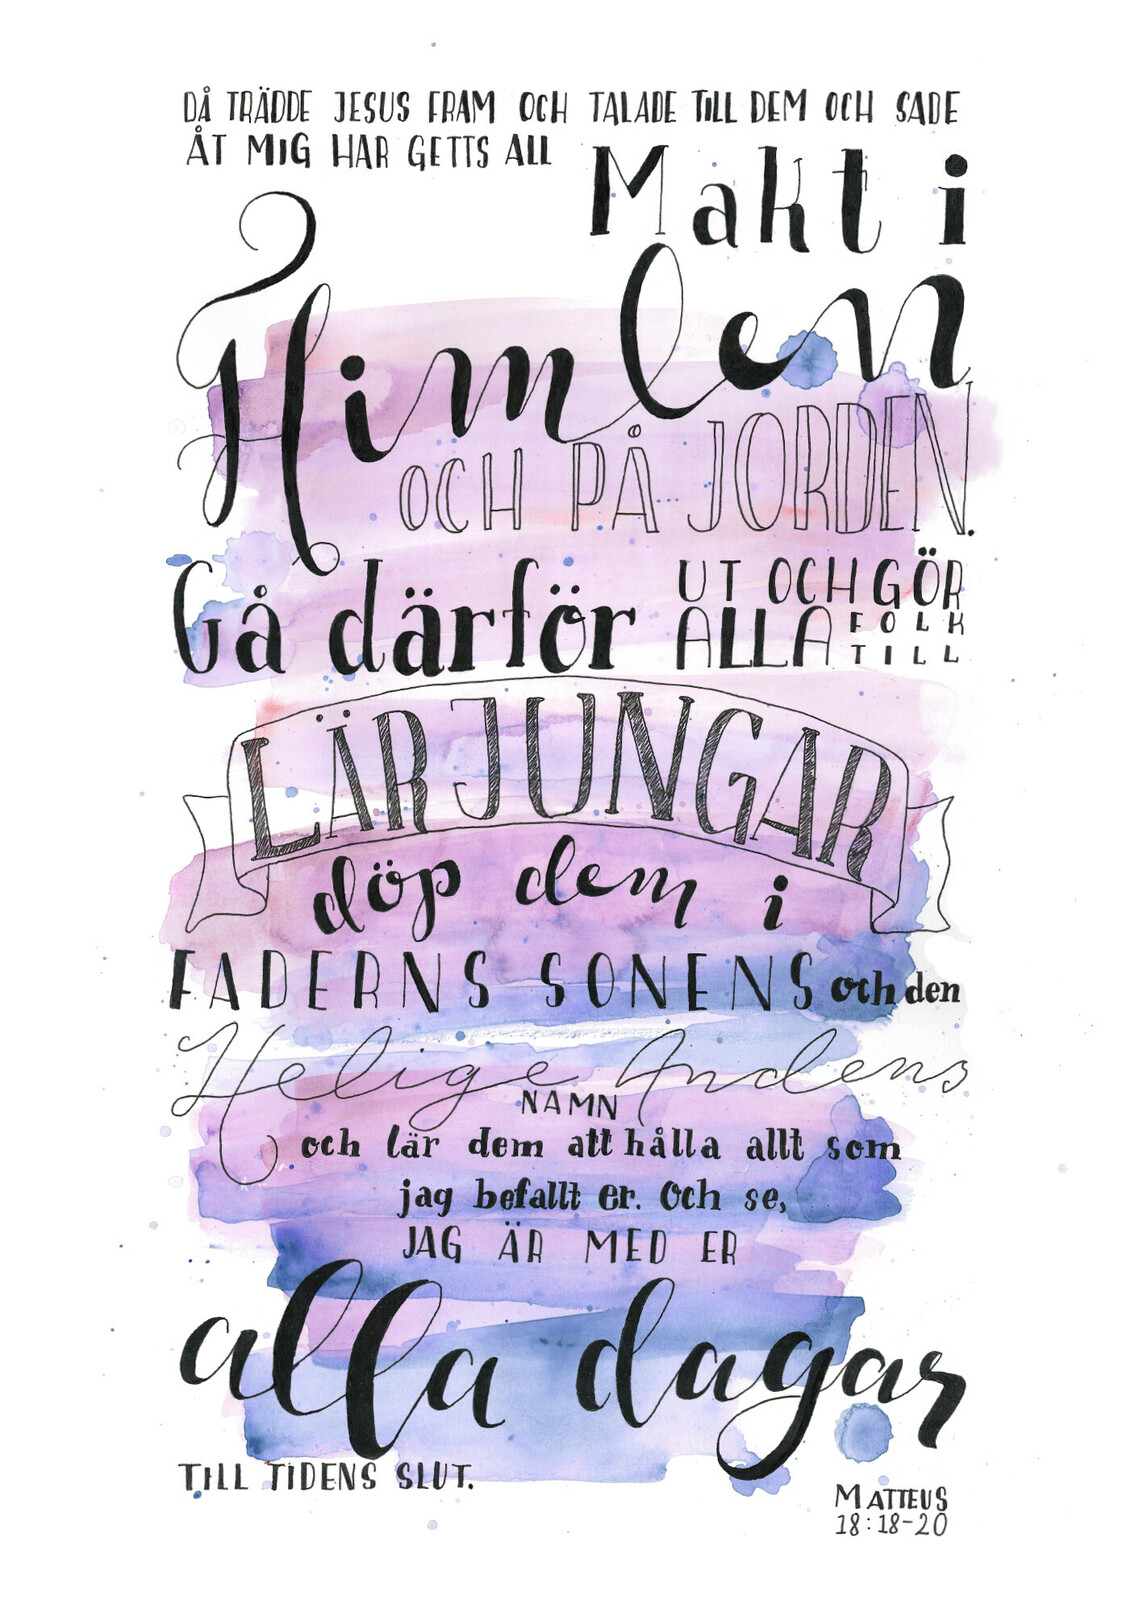 DÅ TRÄDDE JESUS FRAM OCH TALADE TILL DEM OCH SADE
ÅT MIG HAR GETTS ALL
Makt i
Himlen
OCH PÅ JORDEN.
Gå därför
UT OCH GÖR
ALLA
FOLK
TILL
LÄRJUNGAR
döp dem i
FADERNS SONENS och den
Helige Andens
NAMN
och lär dem att hålla allt som
jag befallt er. Och se,
JAG ÄR MED ER
alla dagar
TILL TIDENS SLUT.
MATTEUS
18:18-20